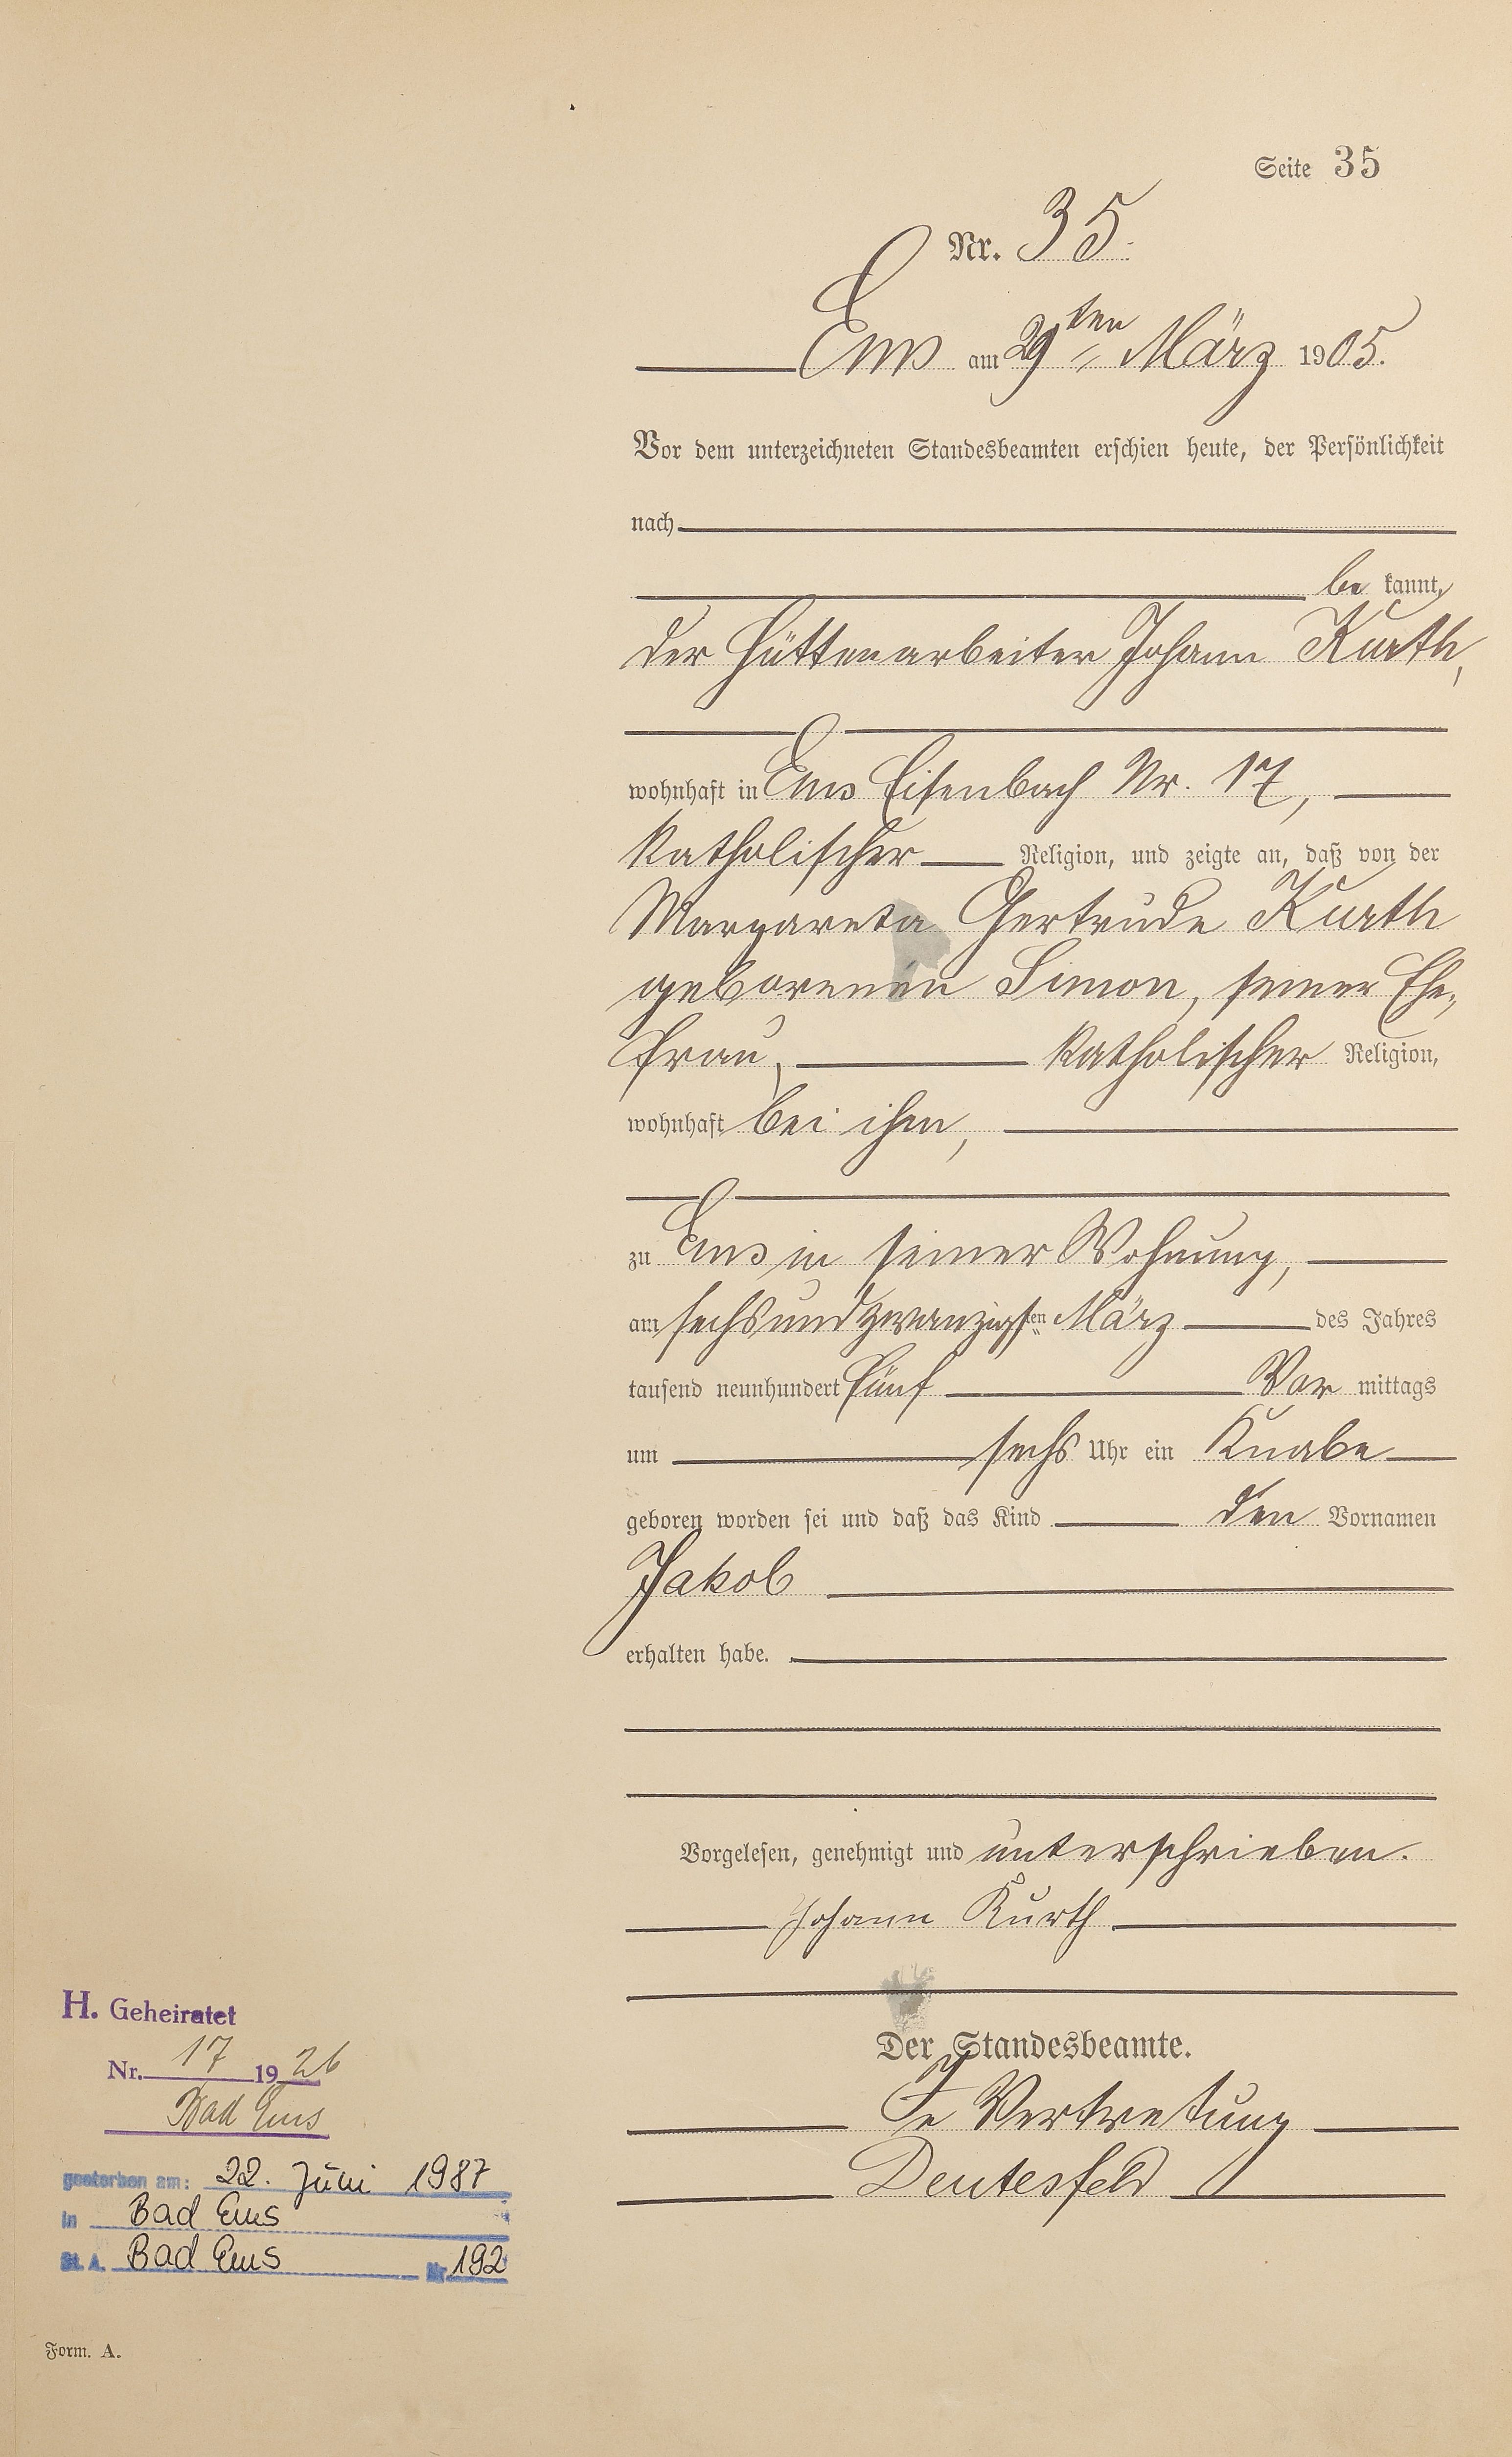 Seite 35
Nr. 35.
Ems am 29ten März 1905.
Vor dem unterzeichneten Standesbeamten erschien heute, der Persönlichkeit
nach
be kannt,
der Hüttenarbeiter Johann Kurth,
wohnhaft in Ems Eisenbach Nr. 17,
katholischer Religion, und zeigte an, daß von der
Margareta Gertrude Kurth
geborenen Simon, seiner Ehe-
frau, katholischer Religion,
wohnhaft bei ihm,
zu Ems in seiner Wohnung,
am sechsundzwanzigsten März des Jahres
tausend neunhundert fünf Vor mittags
um sechs Uhr ein Knabe
geboren worden sei und daß das Kind den Vornamen
Jakob
erhalten habe.
Vorgelesen, genehmigt und unterschrieben.
Johann Kurth
Der Standesbeamte.
In Vertretung
Deutesfeld
H. Geheiratet
Nr. 17 1926
Bad Ems
gestorben am: 22. Juni 1987
in Bad Ems
St. A. Bad Ems Nr 192
Form. A.